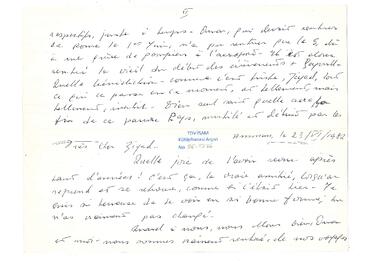 II
respectifs, juste à temps. Omar, qui devait rentrer
de Rome le 1er Juin, n'a pu rentrer que le 5, dû
à une grève de pompiers à l'aéroport. Il est alors
rentré la veille du début des évènements
Quelle bénédiction - comme c'est triste, Ziyad, tout
ce qui se passe en ce moment, et tellement, mais
tellement, inutile. Dieu seul sait quelle sera la
fin de ce pauvre Pays, mutilé et détruit par les
TDV İSAM
Kütüphanesi Arşivi
No
Amman, le 23/ /1982
Très cher Ziyad.
Quelle joie de t'avoir revu après
tant d'années! C'est ça, la vraie amitié, lorsqu'on
reprend et se retrouve, comme si c'était hier. Je
suis si heureuse de te voir en si bonne forme; tu
n'as vraiment pas changé.
Quant à nous, nous Omar
et moi - nous sommes vraiment rentrés, de nos voyages